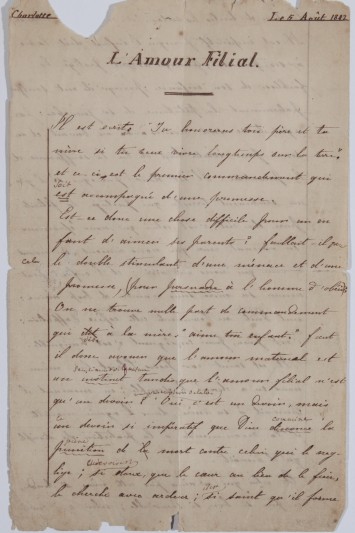 Charlotte Le 5 Août 1842
L'Amour Filial.
Il est écrit: "Tu honoreras ton père et ta
mère si tu veux vivre longtemps sur la terre"
et ce ci est le premier commandement qui
soit
est accompagné d'une promesse.
Est ce donc une chose difficile pour un en
fant d'aimer ses parents? fallait-il
cela
le double stimulant d'une menace et d'une
promesse, (pour persuader à l'homme d'obéir
On ne trouve nulle part de commandement
qui dit à la mère: "aime ton enfant." faut
il donc avouer que l'amour maternel est
un instinct tandis que l'amour filial n'est
qu'un devoir? Oui c'est un devoir, mais
un devoir si impératif que Dieu la
punition de la mort contre celui qui le neg-
lige; si que le cœur au lieu de le fuir,
le cherche avec ardeur; si saint qu'il forme